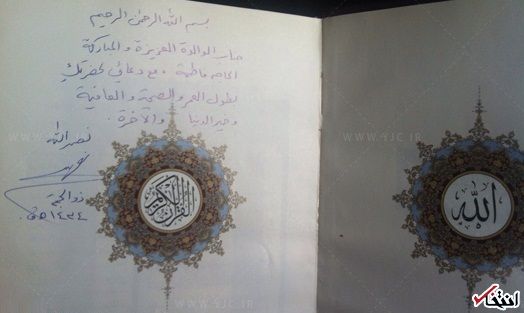 بسم الله الرحمن الرحيم
جناب الوالدة العزيزة والمباركة
الحاجة فاطمة، مع دعائي لحضرتك
بطول العمر والصحة والعافية
وخير الدنيا والآخرة.
نصر الله
ذو الحجة
١٤٣٤ هـ ق.
القرآن الكريم
الله
WWW.YJC.IR
WWW.YJC.IR
انتخاب